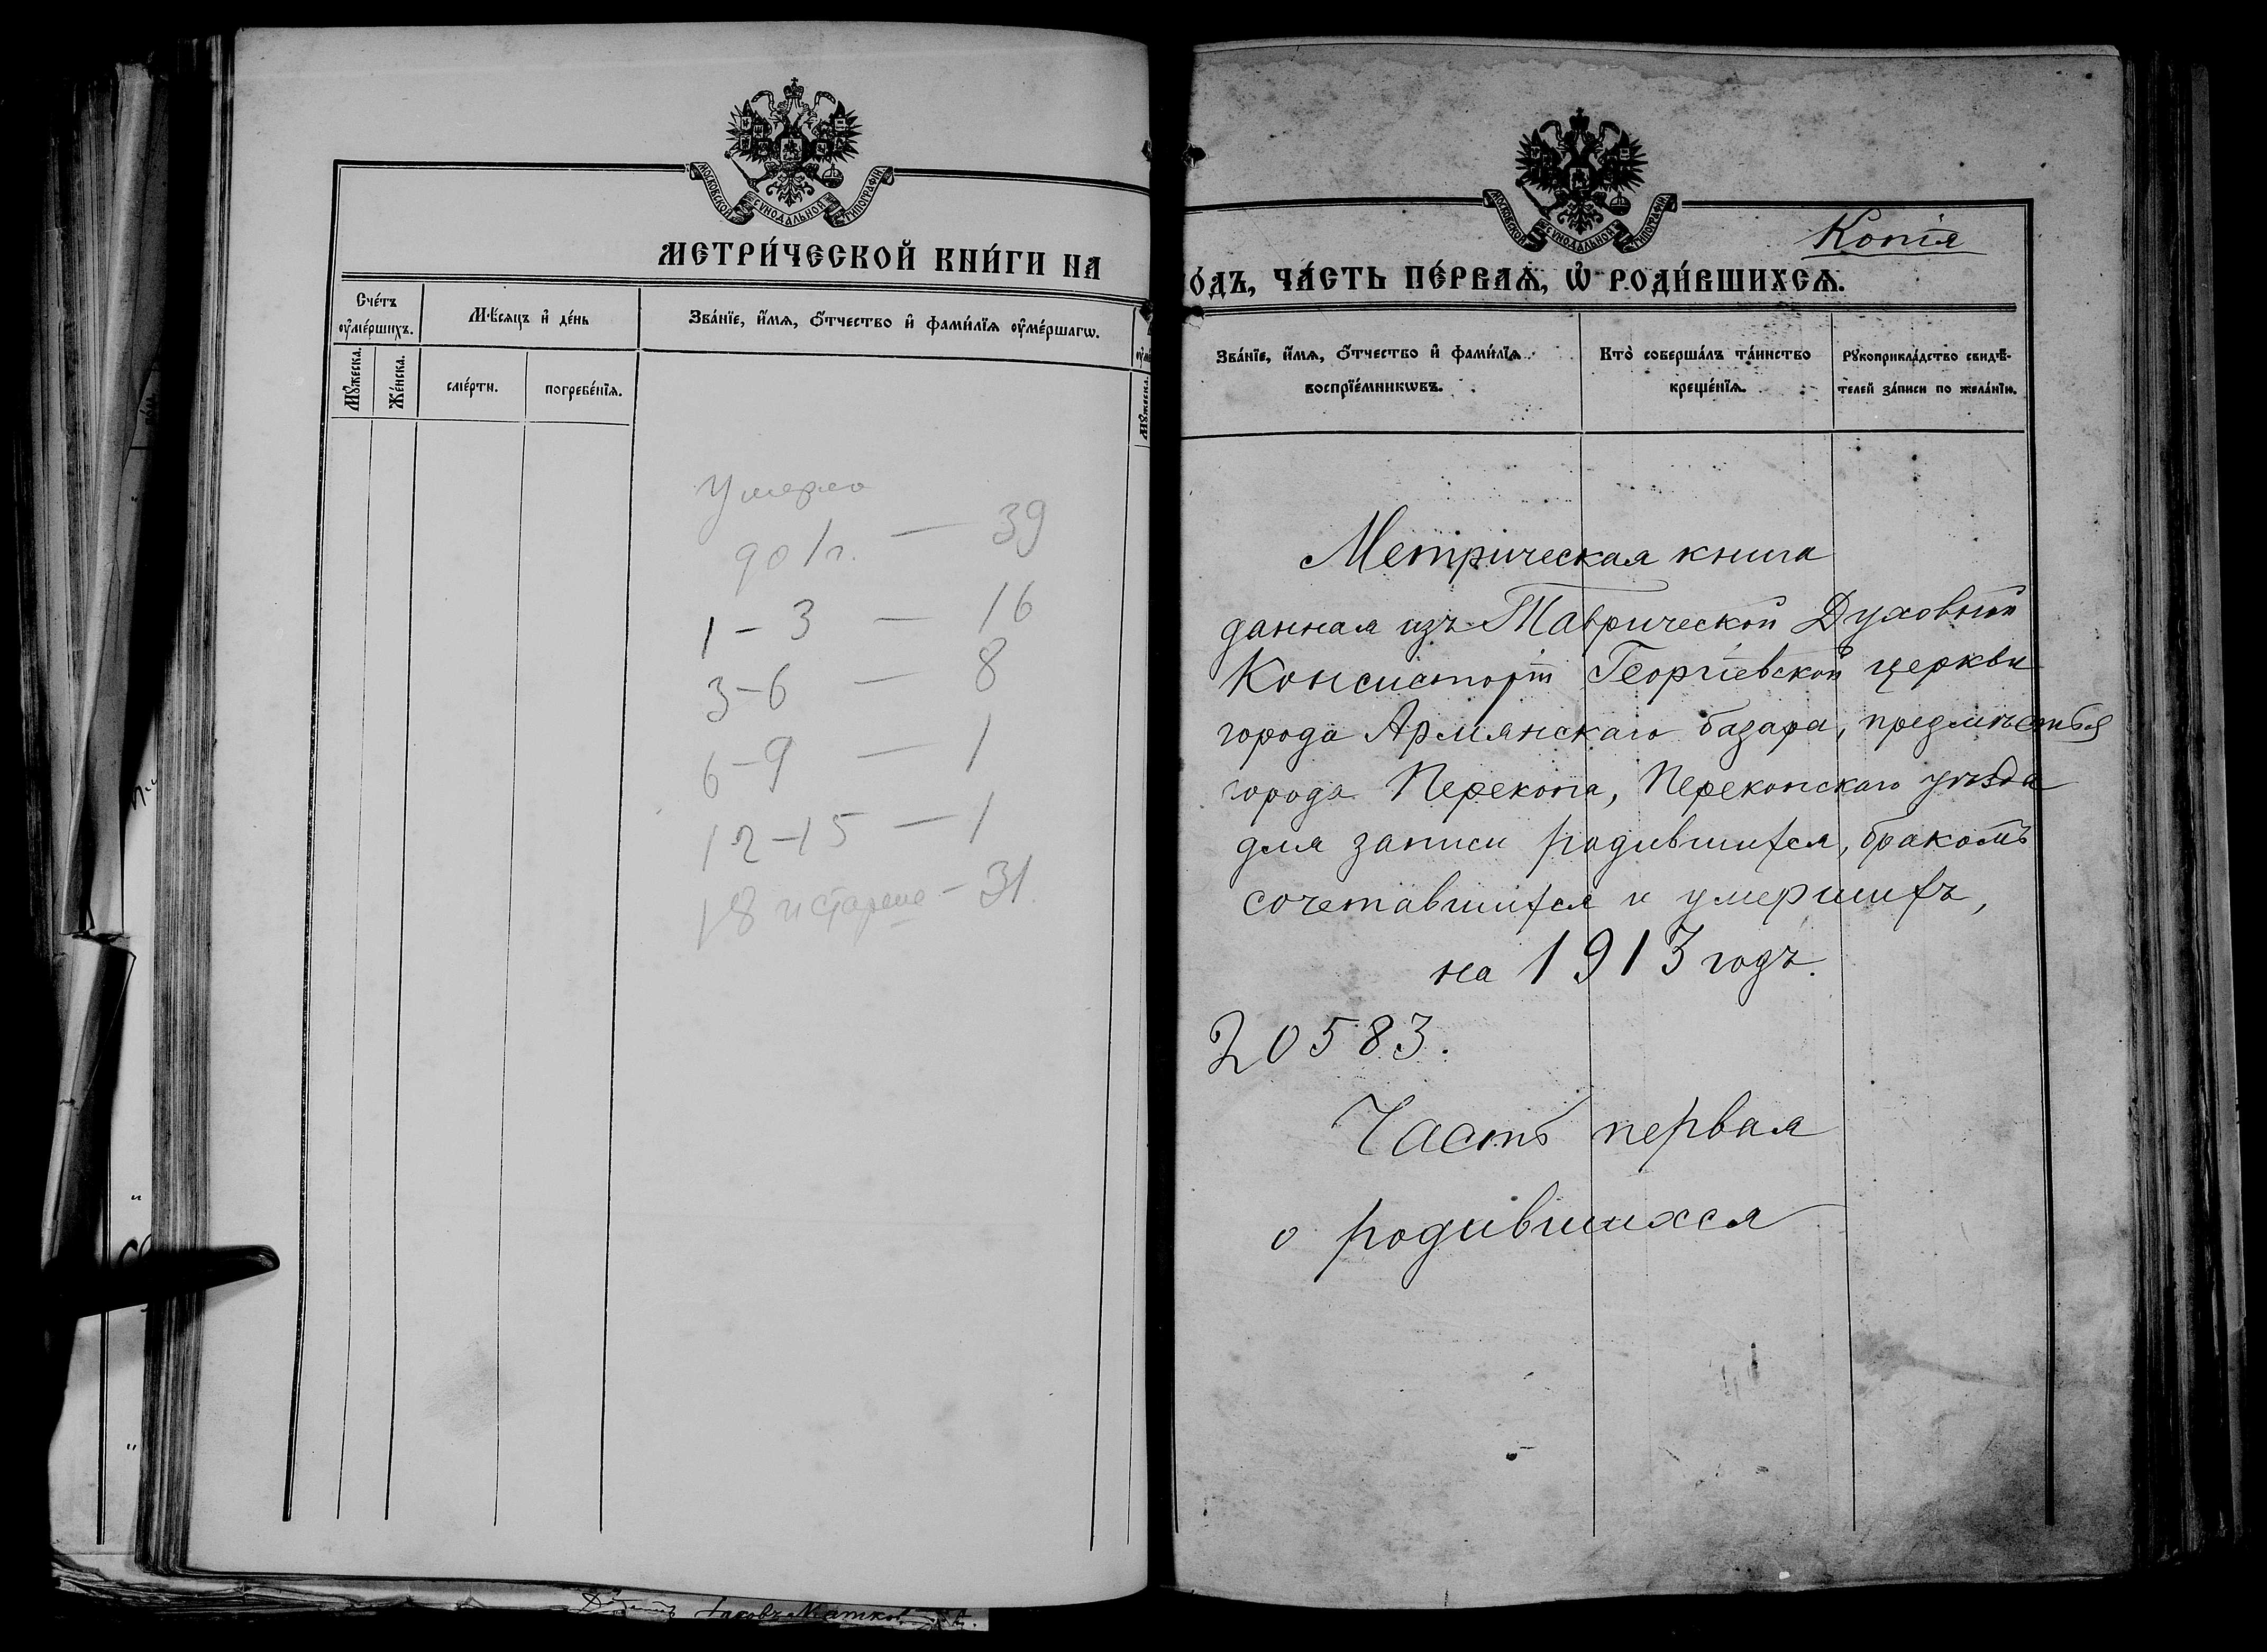 МОСКОВСКОЙ СѴНОДАЛЬНОЙ ТИПОГРАФІИ
МЕТРИ́ЧЕСКОЙ КНИ́ГИ НА
Сче́тъ ᲂу҆ме́ршихъ.
Мѣ́сяцъ и҆ де́нь
Зва́нїе, и҆́мѧ, ѻ҆́тчество и҆ фами́лїѧ ᲂу҆ме́ршагѡ.
Мꙋ́жеска.
Же́нска.
сме́рти.
погребе́нїѧ.
Мꙋ́жеска.
Умерло
до 1 г. — 39
1 – 3 — 16
3 – 6 — 8
6 – 9 — 1
12 – 15 — 1
18 и старше – 31.
МОСКОВСКОЙ СѴНОДАЛЬНОЙ ТИПОГРАФІИ
Копія
О́ДЪ, ЧА́СТЬ ПЕ́РВАѦ, Ѡ҆ РОДИ́ВШИХСѦ.
Зва́нїе, и҆́мѧ, ѻ҆́тчество и҆ фами́лїѧ воспрїе́мникѡвъ.
Кто̀ соверша́лъ та́инство креще́нїѧ.
Рꙋкоприкла́дство свидѣ́телей за́писи по жела́нїю.
Метрическая книга
данная изъ Таврической Духовной
Консисторіи Георгіевской церкви
города Армянскаго базара, предмѣстья
города Перекопа, Перекопскаго уѣзда
для записи родившихся, бракомъ
сочетавшихся и умершихъ,
на 1913 годъ.
20583.
Часть первая
о родившихся